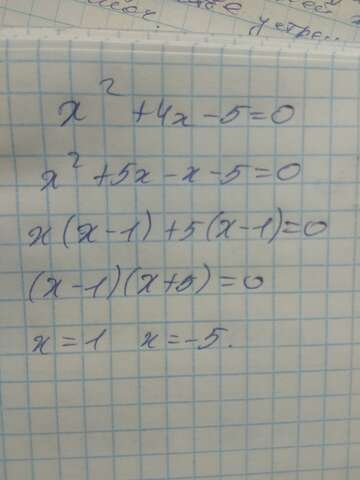 устре..
x² + 4x - 5 = 0
x² + 5x - x - 5 = 0
x(x - 1) + 5(x - 1) = 0
(x - 1)(x + 5) = 0
x = 1   x = -5.